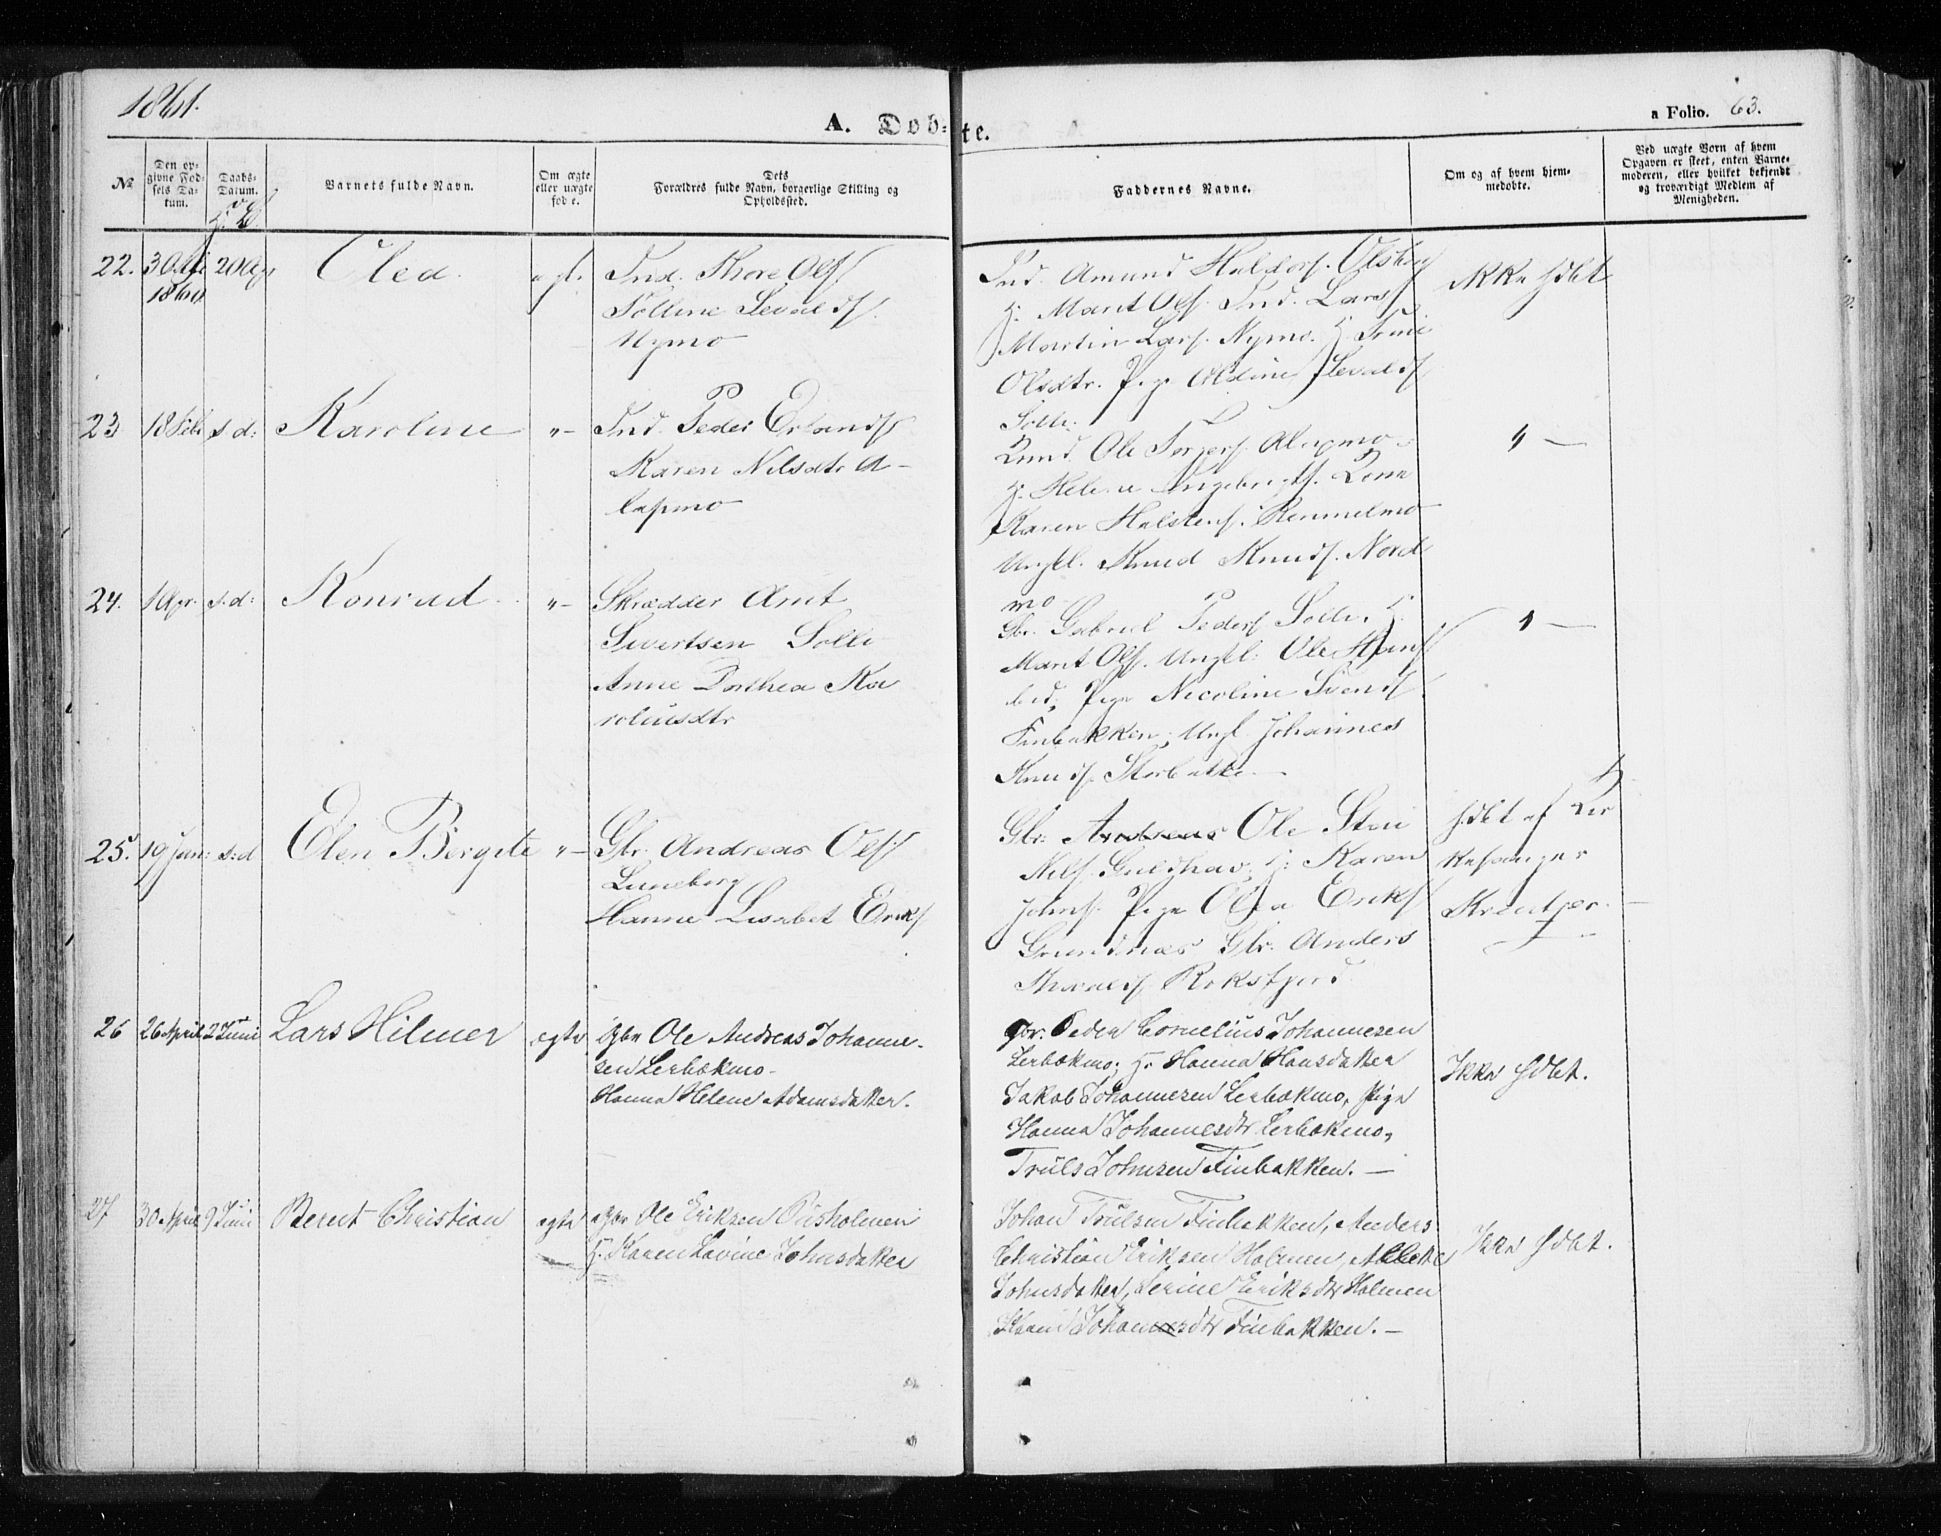 1861.
A. Døb-te.
a Folio. 63.
№
Den op-
givne Fød-
sels Da-
tum.
Daabs-
Datum.
Barnets fulde Navn.
Om ægte
eller uægte
føde.
Dets
Forældres fulde Navn, borgerlige Stilling og
Opholdssted.
Faddernes Navne.
Om og af hvem hjem-
medøbte.
Ved uægte Børn af hvem
Opgaven er skeet, enten Barne-
moderen, eller hvilket bekjendt
og troværdigt Medlem af
Menigheden.
22.
1860
Olea
Ind. Thore Ols.
Nymo
Ind. Amund Haldors. Olsborg
H: Marit Ols. Ind. Lars
Martin Lars. Nymo.
Olsdtr. Pige
ikke hdbt
23
18 Feb.
s. d:
Karoline
"-
Ind. Peder Erlands.
Karen Nilsdtr A-
lapmo
Ole Alapmo
Karen Halstens. Rennelmo
Ungk. Knud Knuds. Nord
mo
" -
24.
1 Apr.
s. d:
Konrad
"-
Skrædder Arnt
Sivertsen Solli
Anne Dorthea Ka
roliusdtr
Gbr. Gabriel Peders Solli. H:
Marit Ols. Ungk: Ole Hans
Pige Nicoline Svends
Finbakken, Ungk. Johannes
Knuds. Storbakke
" -
25.
19 Jan:
s: d
Elen Bergite
"-
Gbr. Andreas Ols.
Luneborg
Hanne Lisabet Eriks
Gbr. Andreas Ole Steen
Nils. Guldhav; H: Karen
Johns. Pige Olea Eriks
Grundnæs Gbr. Anders
Thoralds Roksfjord
Hdbt af Kir
kesanger
Kræutzer.
26
26 April
2 Juni
Lars Hilmer
egte
gbr Ole Andreas Johanne-
sen Lerbækmo -
Hanna Helene Adamsdatter.
gbr. Peder Cornelius Johannesen
Lerbækmo; H: Hanna Hansdatter
Jakob Johannesen Lerbækmo, Pige
Hanna Johannesdtr Lerbækmo,
Truls Johnsen Finbakken. -
Ikke Hdbt.
27
30 April
9 Juni
Berent Christian
egte
gbr Ole Eriksen
H: Karen Lovine Johnsdatter
Johan Trulsen Finbakken, Anders
Christian Eriksen Holmen,
Johnsdatter, Serine Eriksdtr Holmen
Johannesdtr Finbakken. -
Ikke Hdbt.